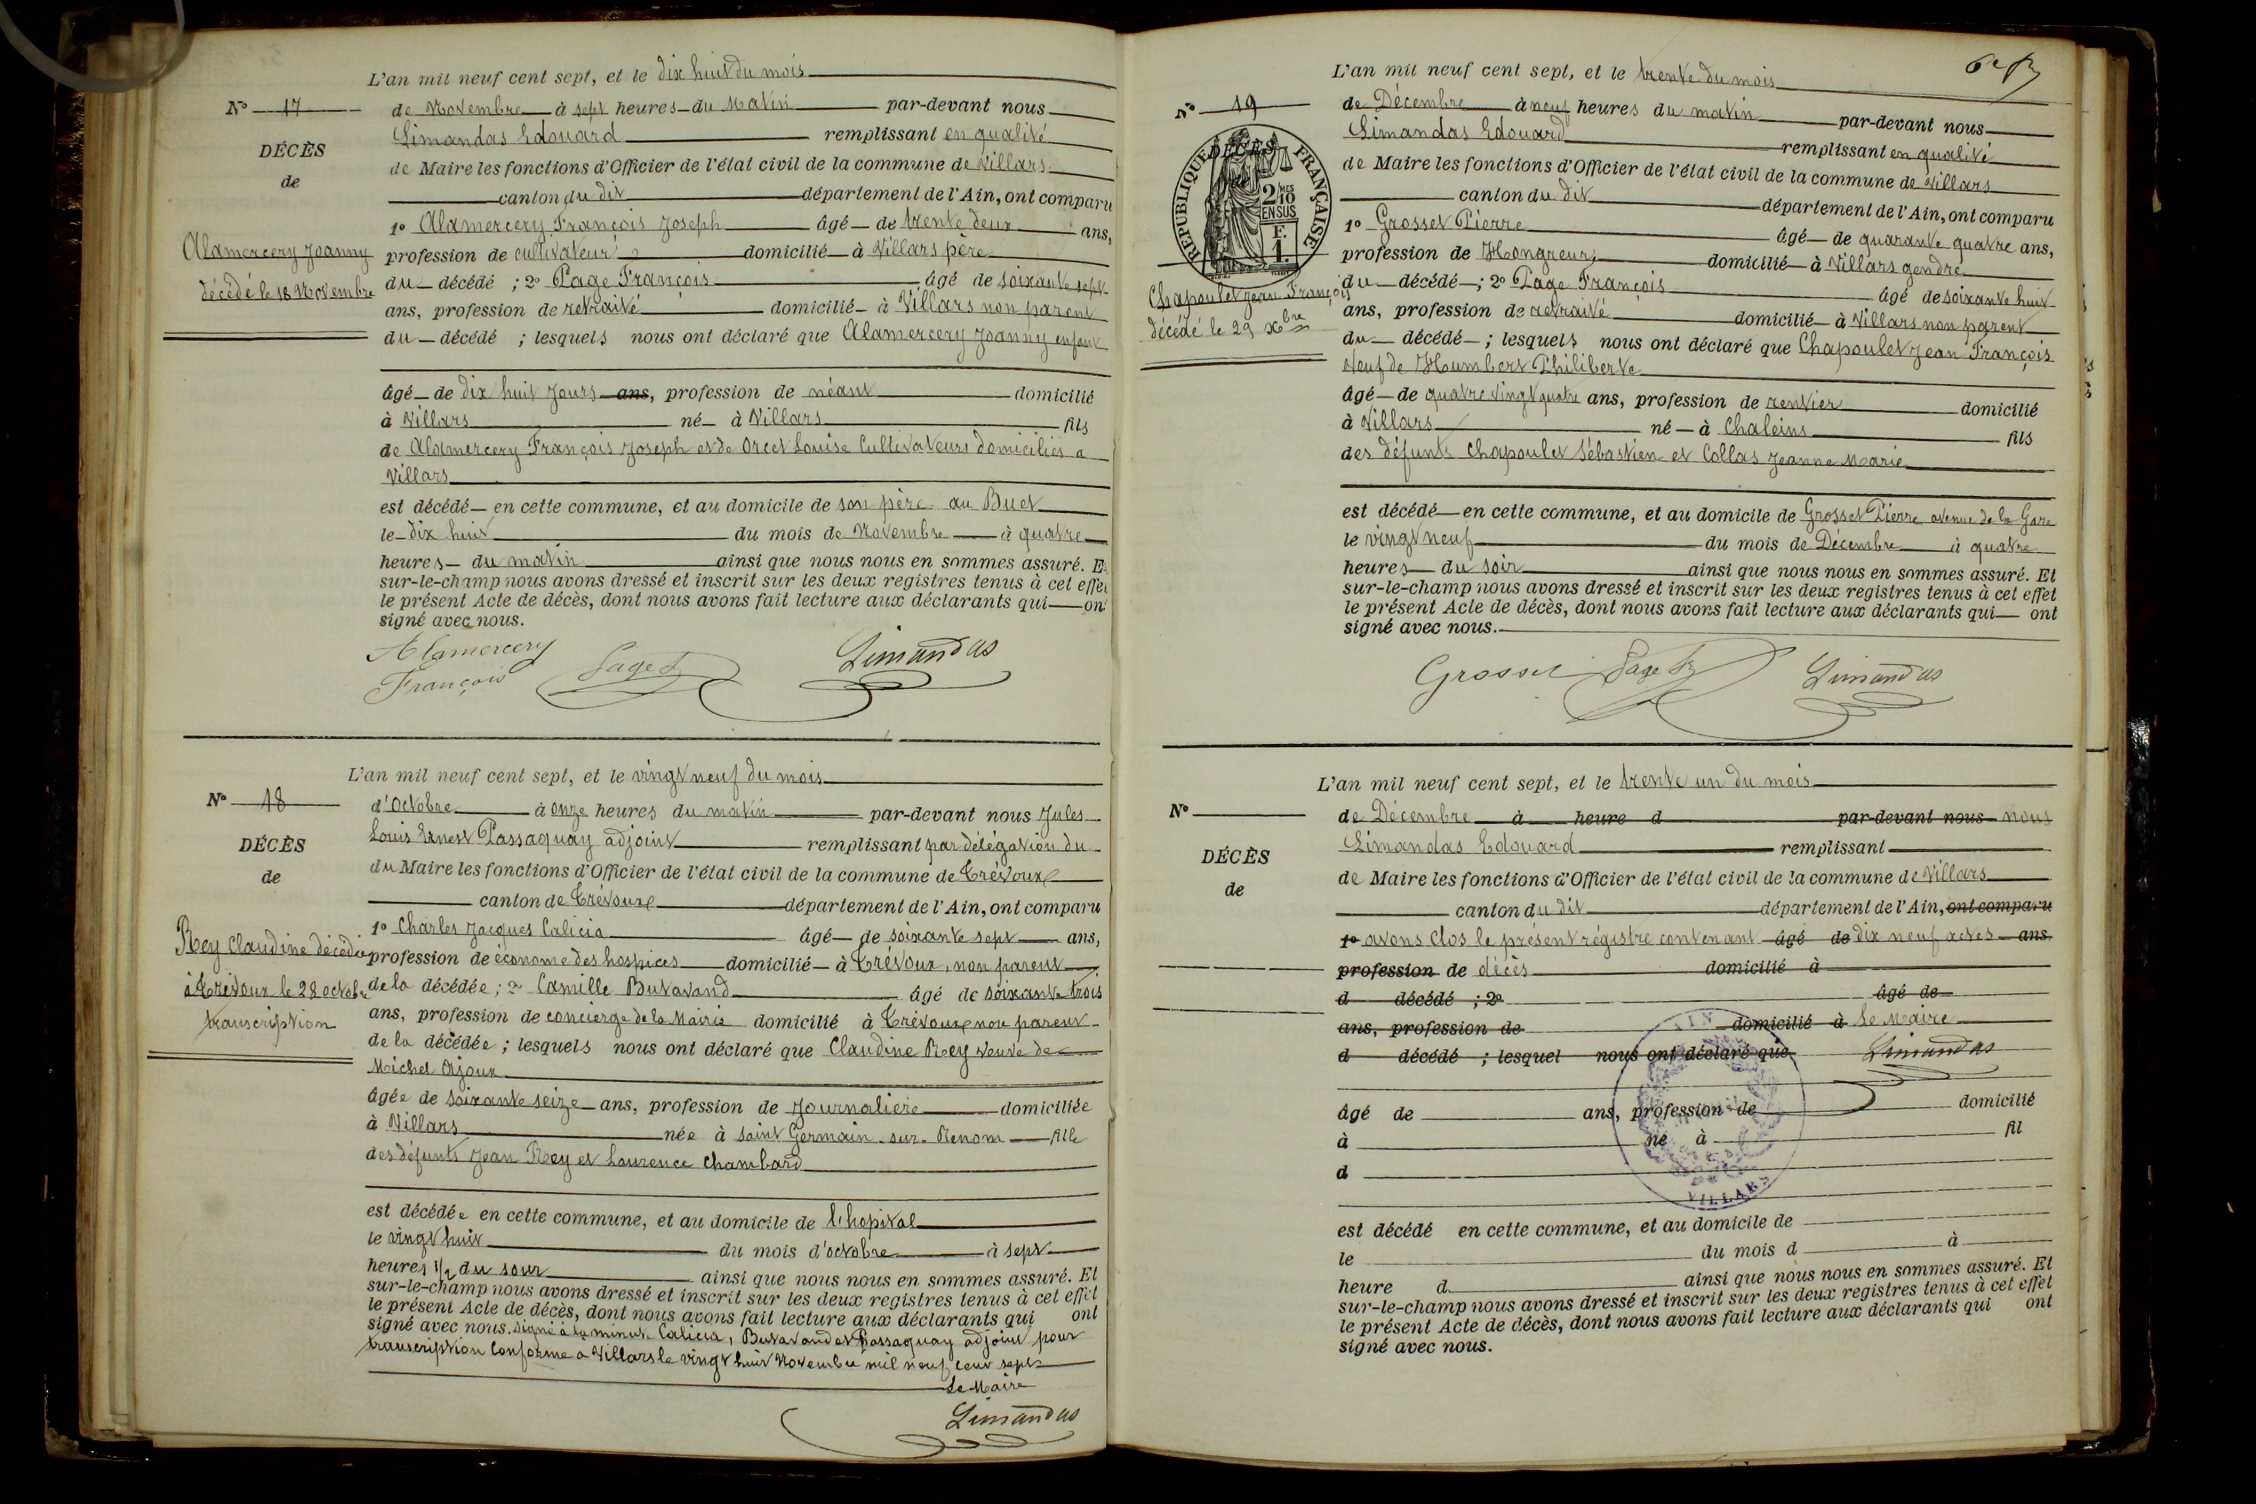 L'an mil neuf cent sept, et le dix huit du mois
N° 17
de Novembre à sept heures du Matin par-devant nous
Limandas Edouard remplissant en qualité
DÉCÈS
de
de Maire les fonctions d'Officier de l'état civil de la commune de Villars
canton du dit département de l'Ain, ont comparu
1° Alamercery François Joseph âgé de trente deux ans,
Alamercery Joanny
décédé le 18 Novembre
profession de cultivateur domicilié à Villars père
du décédé ; 2° Page François âgé de soixante sept
ans, profession de retraité domicilié à Villars non parent
du décédé ; lesquels nous ont déclaré que Alamercery Joanny enfant
âgé de dix huit jours ans, profession de néant domicilié
à Villars né à Villars fils
de Alamercery François Joseph et de Orcet Louise Cultivateurs domiciliés a
Villars
est décédé en cette commune, et au domicile de son père au Buet
le dix huit du mois de Novembre à quatre
heures du matin ainsi que nous nous en sommes assuré. Et
sur-le-champ nous avons dressé et inscrit sur les deux registres tenus à cet effet
le présent Acte de décès, dont nous avons fait lecture aux déclarants qui ont
signé avec nous.
Alamercery
François
Page F
Limandas
L'an mil neuf cent sept, et le vingt neuf du mois
N° 18
d'Octobre à onze heures du matin par-devant nous Jules
Louis Ernest Passaquay adjoint remplissant par délégation du
DÉCÈS
de
du Maire les fonctions d'Officier de l'état civil de la commune de Trévoux
canton de Trévoux département de l'Ain, ont comparu
1° Charles Jacques Calicia âgé de soixante sept ans,
Rey Claudine décédée
à Trévoux le 28 octobre
transcription
profession de économe des hospices domicilié à Trévoux, non parent
de la décédée ; 2° Camille Butavand âgé de soixante trois
ans, profession de concierge de la Mairie domicilié à Trévoux non parent
de la décédée ; lesquels nous ont déclaré que Claudine Rey veuve de
Michel Ajoux
âgée de soixante seize ans, profession de Journalière domiciliée
à Villars née à Saint Germain sur Renom fille
des défunts Jean Rey et Laurence Chambard
est décédée en cette commune, et au domicile de l'hopital
le vingt huit du mois d'octobre à sept
heures 1/2 du soir ainsi que nous nous en sommes assuré. Et
sur-le-champ nous avons dressé et inscrit sur les deux registres tenus à cet effet
le présent Acte de décès, dont nous avons fait lecture aux déclarants qui ont
signé avec nous. Signé à la minute Calicia, Butavand et Passaquay adjoint pour
transcription conforme a Villars le vingt huit Novembre mil neuf cent sept
Le Maire
Limandas
L'an mil neuf cent sept, et le trente du mois
N° 19
de Décembre à neuf heures du matin par-devant nous
Limandas Edouard remplissant en qualité
DÉCÈS
de
RÉPUBLIQUE FRANÇAISE
2/10 MES
EN SUS
F.
1.
de Maire les fonctions d'Officier de l'état civil de la commune de Villars
canton du dit département de l'Ain, ont comparu
1° Grosset Pierre âgé de quarante quatre ans,
profession de Hongreur domicilié à Villars gendre
Chapoulet Jean François
décédé le 29 Xbre
du décédé ; 2° Page François âgé de soixante huit
ans, profession de retraité domicilié à Villars non parent
du décédé ; lesquels nous ont déclaré que Chapoulet Jean François
Veuf de Humbert Philiberte
âgé de quatre vingt quatre ans, profession de rentier domicilié
à Villars né à Chaleins fils
des défunts Chapoulet Sébastien et Collas Jeanne Marie
est décédé en cette commune, et au domicile de Grosset Pierre avenue de la Gare
le vingt neuf du mois de Décembre à quatre
heures du soir ainsi que nous nous en sommes assuré. Et
sur-le-champ nous avons dressé et inscrit sur les deux registres tenus à cet effet
le présent Acte de décès, dont nous avons fait lecture aux déclarants qui ont
signé avec nous.
Grosset
Page F
Limandas
L'an mil neuf cent sept, et le trente un du mois
N°
de Décembre à heure d par-devant nous nous
Limandas Edouard remplissant
DÉCÈS
de
de Maire les fonctions d'Officier de l'état civil de la commune de Villars
canton du dit département de l'Ain, ont comparu
1° avons clos le présent régistre contenant âgé de dix neuf actes ans
profession de décès domicilié à
d décédé ; 2° âgé de
ans, profession de domicilié à Le Maire
d décédé ; lesquel nous ont déclaré que Limandas
AIN
VILLARS
âgé de ans, profession de domicilié
à né à fil
d
est décédé en cette commune, et au domicile de
le du mois d à
heure d ainsi que nous nous en sommes assuré. Et
sur-le-champ nous avons dressé et inscrit sur les deux registres tenus à cet effet
le présent Acte de décès, dont nous avons fait lecture aux déclarants qui ont
signé avec nous.